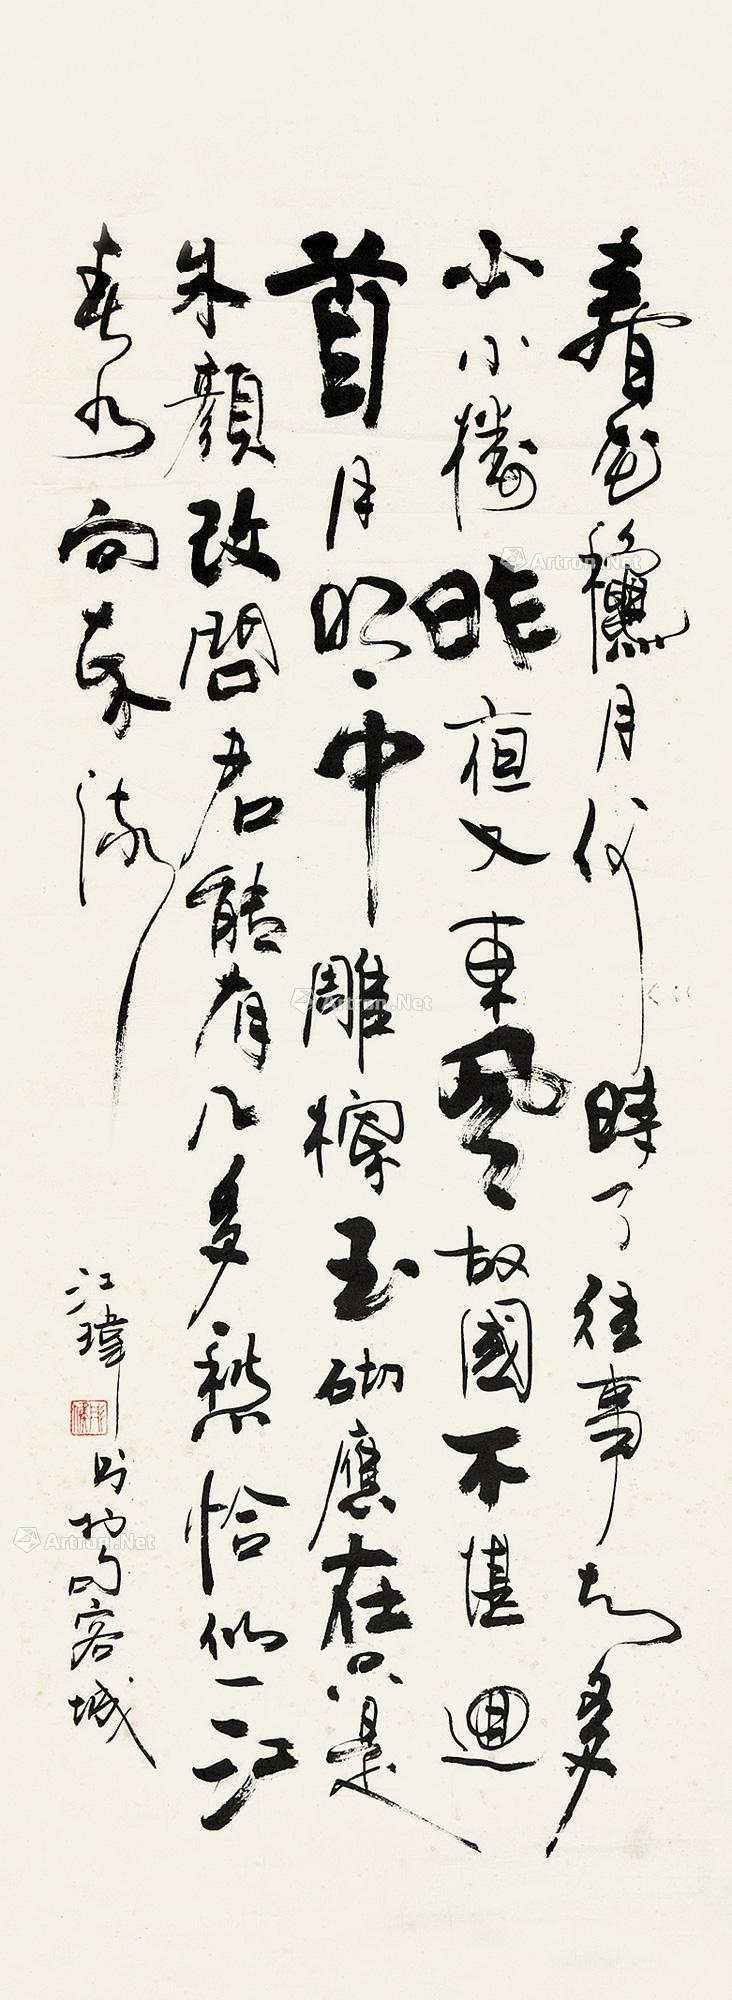 春花龝月何時了往事知多
少小樓昨夜又東風故國不堪迴
首月明中雕欄玉砌應在只是
朱顏改問君能有几多愁恰似一江
春水向東流
江瑋書於句容城
Artron.Net
Artron.Net
Artron.Net